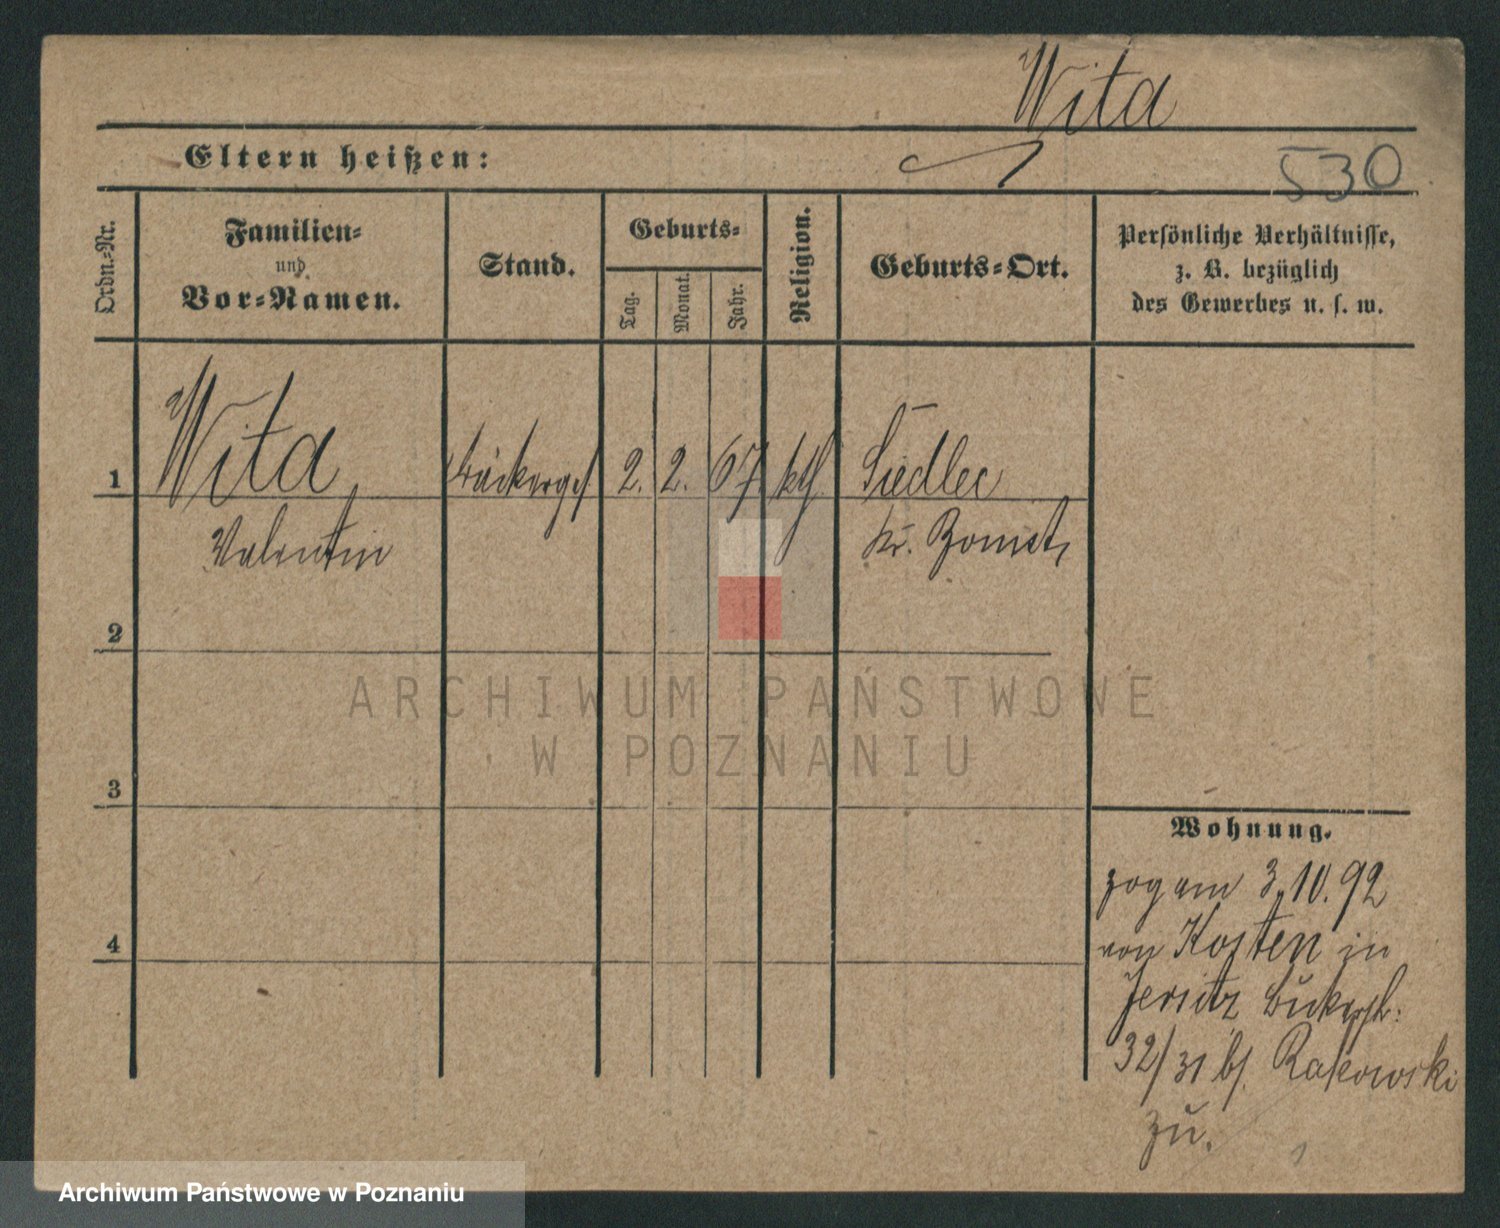 Wita
Eltern heißen:
530
Ordn.-Nr.
Familien-
und
Vor-Namen.
Stand.
Geburts-
Tag.
Monat.
Jahr.
Religion.
Geburts-Ort.
Persönliche Verhältnisse,
z. B. bezüglich
des Gewerbes u. s. w.
1
Wita
Bäckerges
2. 2. 67
kth
Siedlec
Valentin
Kr. Bomst,
2
ARCHIWUM PAŃSTWOWE
W POZNANIU
3
Wohnung.
zog am 3.10.92
4
von Kosten in
Jersitz
32/31 b/. Rakowski
zu.
Archiwum Państwowe w Poznaniu